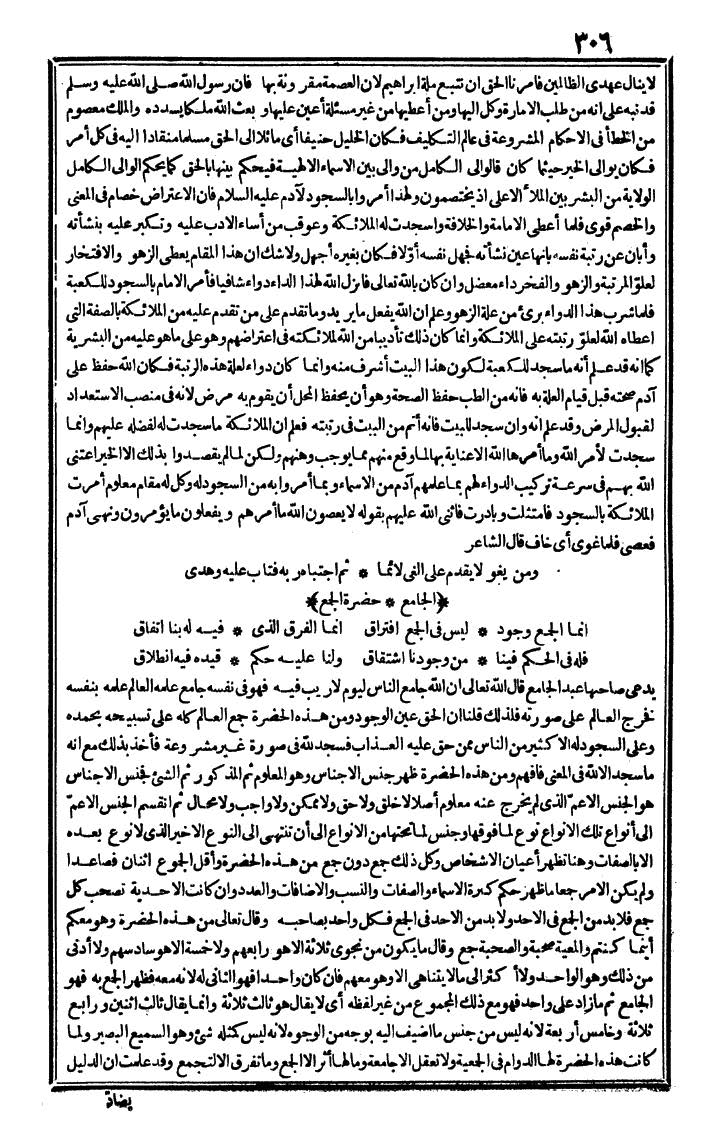 ٣٠٦
لا ينال عهدى الظالمين فأمرنا الحق ان نتبع ملة ابراهيم لان العصمة مقرونة بها فان رسول الله صلى الله عليه وسلم
قد نبه على انه من طلب الامارة وكل اليها ومن أعطيها من غير مسئلة أعين عليها وبعث الله ملكا يسدده والملك معصوم
من الخطأ فى الاحكام المشروعة فى عالم التكليف فكان الخليل حنيفا أى مائلا الى الحق مسلما منقادا اليه فى كل أمر
فكان يوالى الخير حيثما كان قالوالى الكامل من والى بين الاسماء الالهية فيحكم بينها بالحق كما يحكم الوالى الكامل
الولاية من البشر بين الملأ الاعلى اذ يختصمون ولهذا أمروا بالسجود لآدم عليه السلام فان الاعتراض خصام فى المعنى
والخصم قوى فلما أعطى الامامة والخلافة واسجدت له الملائكة وعوقب من أساء الادب عليه وتكبر عليه بنشأته
وأبان عن رتبة نفسه بانها عين نشأته فجهل نفسه أولا فكان بغيره أجهل ولا شك ان هذا المقام يعطى الزهو والافتخار
لعلو المرتبة والزهو والفخر داء معضل وان كان بالله تعالى فانزل الله لهذا الداء دواء شافيا فأمر الامام بالسجود للكعبة
فلما شرب هذا الدواء برئ من علة الزهو وعلم ان الله يفعل ما يريد وما تقدم على من تقدم عليه من الملائكة بالصفة التى
اعطاه الله لعلو رتبته على الملائكة وانما كان ذلك تأديبا من الله لملائكته فى اعتراضهم وهو على ما هو عليه من البشرية
كما انه قد علم أنه ما سجد للكعبة لكون هذا البيت أشرف منه وانما كان دواء لعلة هذه الرتبة فكان الله حفظ على
آدم صحته قبل قيام العلة به فانه من الطب حفظ الصحة وهو أن يحفظ المحل أن يقوم به مرض لانه فى منصب الاستعداد
لقبول المرض وقد علم انه وان سجد للبيت فانه أتم من البيت فى رتبته فعلم ان الملائكة ما سجدت له لفضله عليهم وانما
سجدت لأمر الله وما أمرها الله الا عناية بها لما وقع منهم مما يوجب وهنهم ولكن لما لم يقصدوا بذلك الا الخير اعتنى
الله بهم فى سرعة تركيب الدواء لهم بما علمهم آدم من الاسماء وبما أمروا به من السجود له وكل له مقام معلوم أمرت
الملائكة بالسجود فامتثلت وبادرت فاثنى الله عليهم بقوله لا يعصون الله ما أمرهم ويفعلون ما يؤمرون ونهى آدم
فعصى فلما غوى أى خاف قال الشاعر
ومن يغو لا يعدم على الغى لائما * ثم اجتباه ربه فتاب عليه وهدى
﴿الجامع * حضرة الجمع﴾
انما الجمع وجود * ليس فى الجمع افتراق انما الفرق الذى * فيه له بنا اتفاق
فله فى الحكم فينا * من وجودنا اشتقاق ولنا عليه حكم * قيده فيه انطلاق
يدعى صاحبها عبد الجامع قال الله تعالى ان الله جامع الناس ليوم لا ريب فيه فهو فى نفسه جامع علمه العالم علمه بنفسه
فخرج العالم على صورته فلذلك قلنا ان الحق عين الوجود ومن هذه الحضرة جمع العالم كله على تسبيحه بحمده
وعلى السجود له الا كثير من الناس ممن حق عليه العذاب فسجد لله فى صورة غير مشروعة فأخذ بذلك مع انه
ما سجد الا لله فى المعنى فافهم ومن هذه الحضرة ظهر جنس الاجناس وهو المعلوم ثم المذكور ثم الشئ فجنس الاجناس
هو الجنس الاعم الذى لم يخرج عنه معلوم أصلا لا خلق ولا حق ولا ممكن ولا واجب ولا محال ثم انقسم الجنس الاعم
الى أنواع تلك الانواع نوع لما فوقها وجنس لما تحتها من الانواع الى أن تنتهى الى النوع الاخير الذى لا نوع بعده
الا بالصفات وهنا تظهر أعيان الاشخاص وكل ذلك جمع دون جمع من هذه الحضرة وأقل الجموع اثنان فصاعدا
ولم يكن الامر جمعا ما ظهر حكم كثرة الاسماء والصفات والنسب والاضافات والعدد وان كانت الاحدية تصحب كل
جمع فلا بد من الجمع فى الاحد ولا بد من الاحد فى الجمع فكل واحد بصاحبه وقال تعالى من هذه الحضرة وهو معكم
أينما كنتم والمعية صحبة والصحبة جمع وقال ما يكون من نجوى ثلاثة الا هو رابعهم ولا خمسة الا هو سادسهم ولا أدنى
من ذلك وهو الواحد ولا أكثر الى ما لا يتناهى الا وهو معهم فان كان واحدا فهو الثانى له لانه معه فظهر الجمع به فهو
الجامع ثم ما زاد على واحد فهو مع ذلك المجموع من غير لفظه أى لا يقال هو ثالث ثلاثة وانما يقال ثالث اثنين ورابع
ثلاثة وخامس أربعة لانه ليس من جنس ما اضيف اليه بوجه من الوجوه لانه ليس كمثله شئ وهو السميع البصير ولما
كانت هذه الحضرة لها الدوام فى الجمعية ولا تعقل الا جامعة وما لها أثر الا الجمع وما تفرق الا لتجمع وقد علمت ان الدليل
يضاد